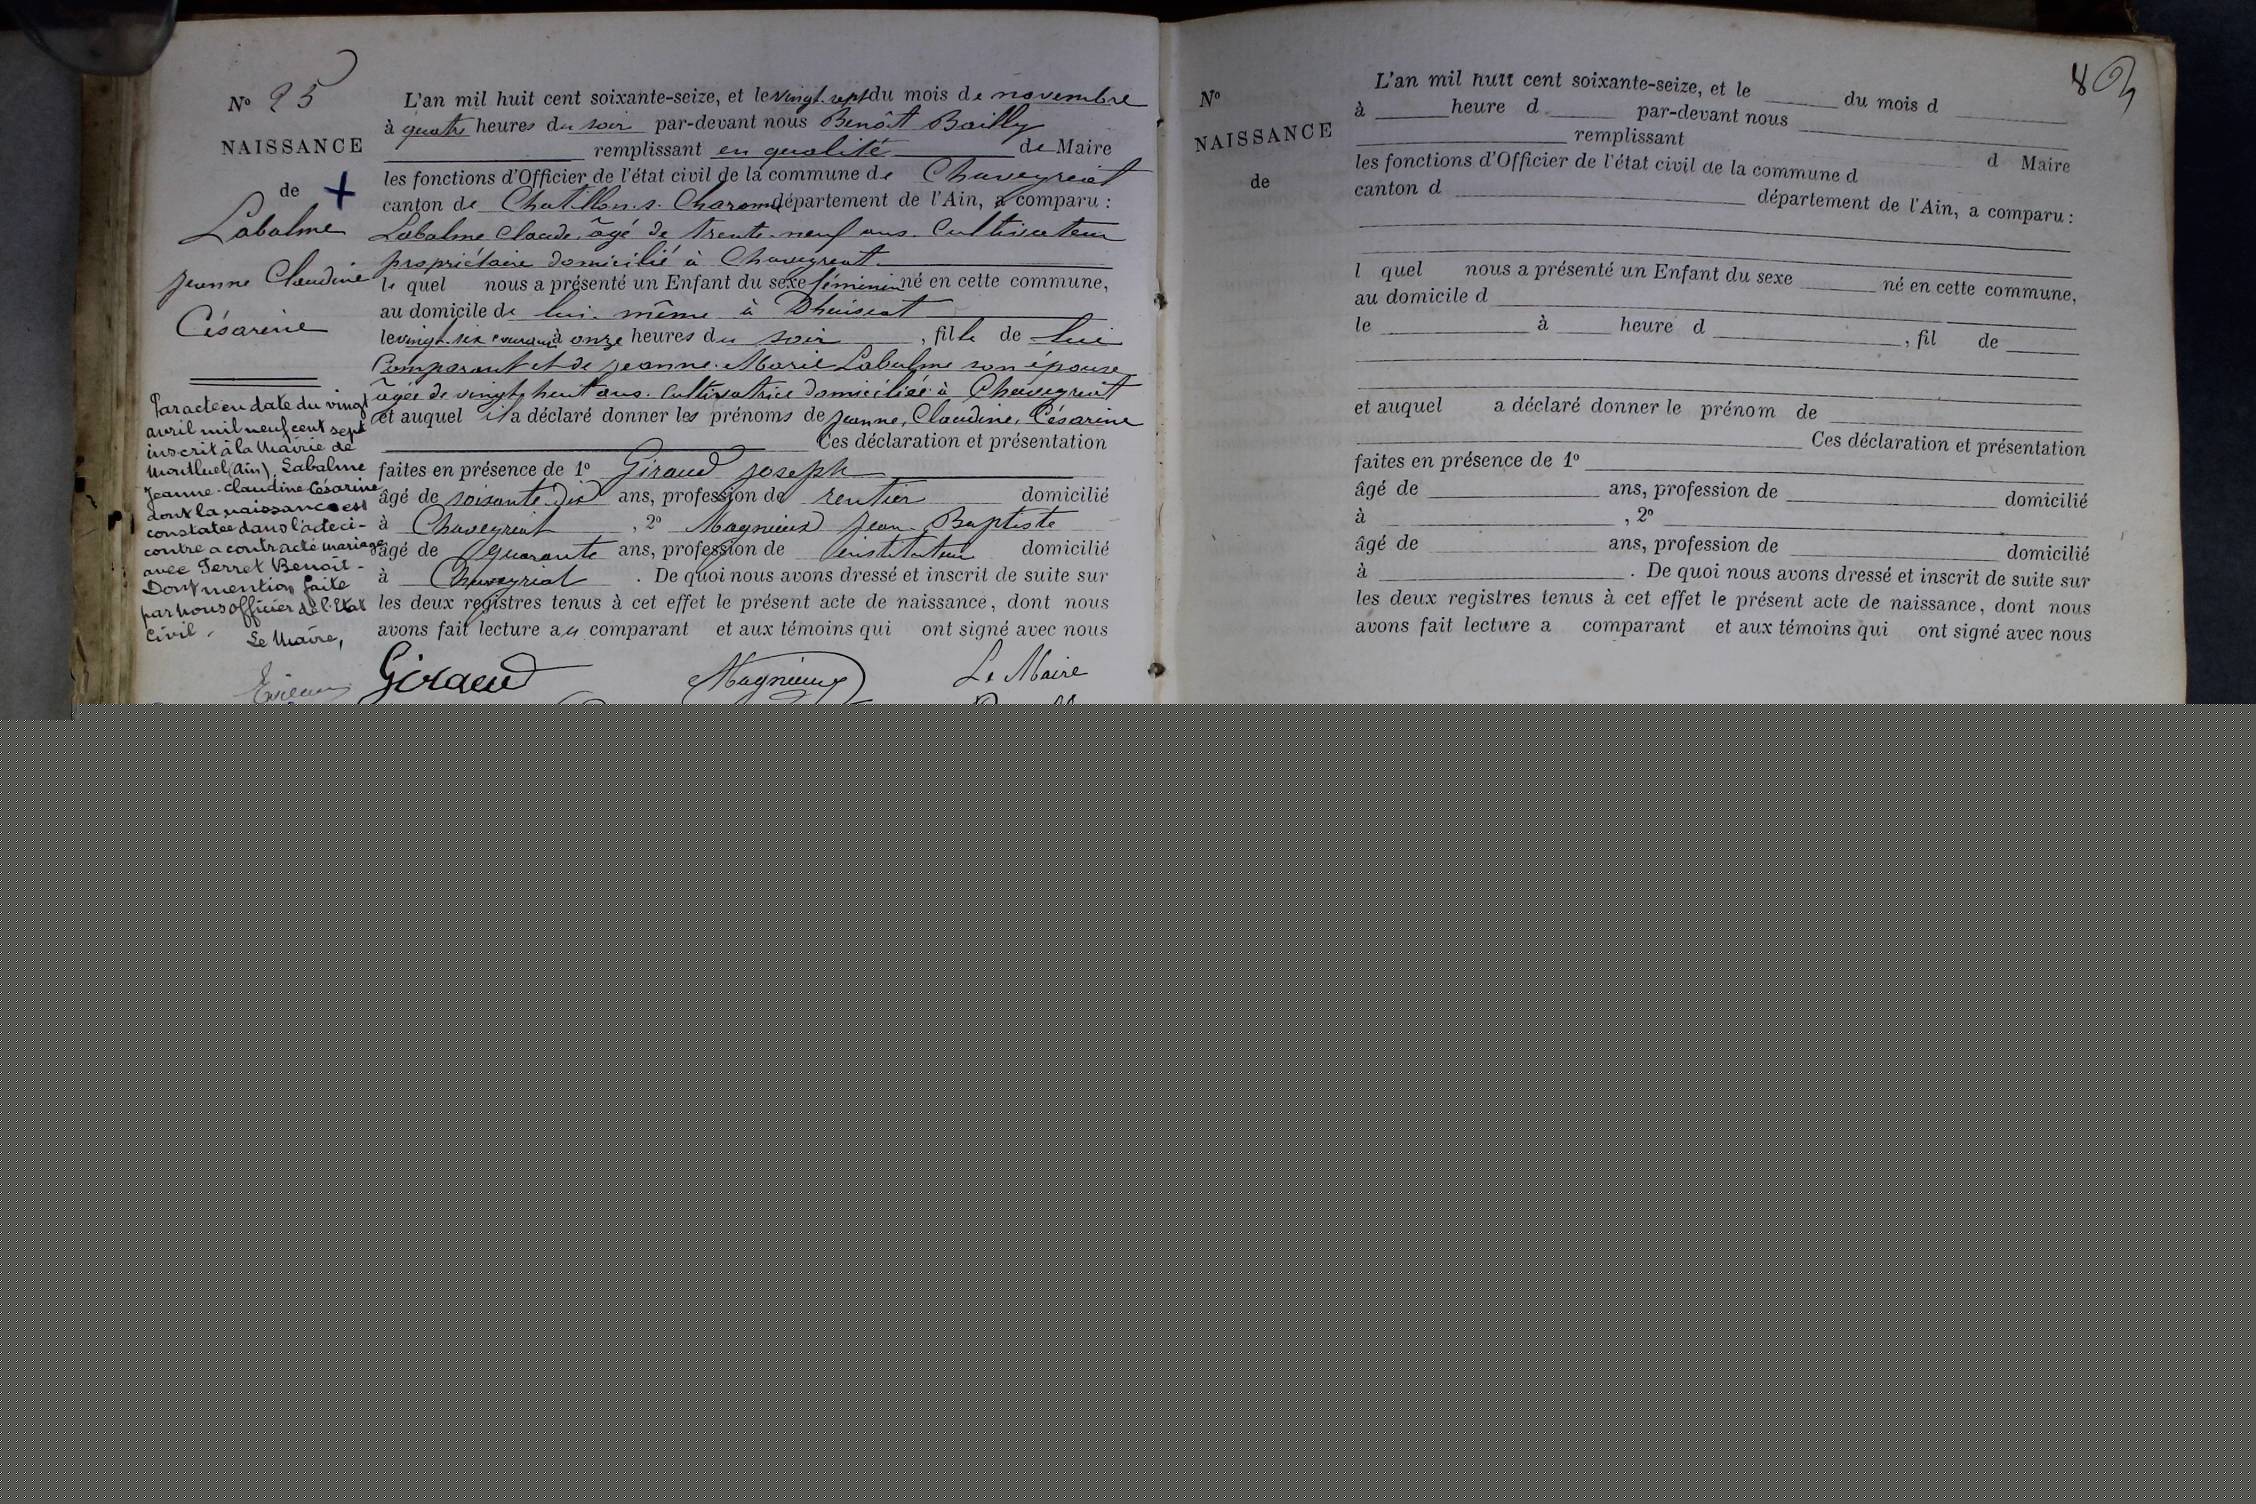 N° 25
NAISSANCE
de +
Labalme
Jeanne Claudine
Césarine
Par acte en date du vingt
avril mil neuf cent sept
inscrit à la Mairie de
Montluel (Ain), Labalme
Jeanne-Claudine Césarine
dont la naissance est
constatée dans l'acte ci-
contre a contracté mariage
avec Perret Benoit-
Dont mention faite
par nous officier de l'Etat
civil.
Le Maire,
L'an mil huit cent soixante-seize, et le vingt-sept du mois de novembre
à quatre heures du soir par-devant nous Benoît Bailly
remplissant en qualité de Maire
les fonctions d'Officier de l'état civil de la commune de Chaveyriat
canton de Chatillon-s-Charonne département de l'Ain, a comparu :
Labalme Claude, âgé de trente-neuf ans. Cultivateur
propriétaire domicilié à Chaveyriat
le quel nous a présenté un Enfant du sexe féminin né en cette commune,
au domicile de lui-même à
le vingt-six courant à onze heures du soir, fille de lui
Comparant et de Jeanne-Marie Labalme son épouse
âgée de vingt-huit ans. Cultivatrice domiciliée à Chaveyriat
et auquel il a déclaré donner les prénoms de Jeanne, Claudine, Césarine
Ces déclaration et présentation
faites en présence de 1° Giraud Joseph
âgé de soixante-dix ans, profession de rentier domicilié
à Chaveyriat, 2° Magnieux Jean-Baptiste
âgé de quarante ans, profession de instituteur domicilié
à Chaveyriat. De quoi nous avons dressé et inscrit de suite sur
les deux registres tenus à cet effet le présent acte de naissance, dont nous
avons fait lecture au comparant et aux témoins qui ont signé avec nous
Giraud Magnieux Le Maire
83
N°
NAISSANCE
de
L'an mil huit cent soixante-seize, et le du mois d
à heure d par-devant nous
remplissant d Maire
les fonctions d'Officier de l'état civil de la commune d
canton d département de l'Ain, a comparu :
l quel nous a présenté un Enfant du sexe né en cette commune,
au domicile d
le à heure d , fil de
et auquel a déclaré donner le prénom de
Ces déclaration et présentation
faites en présence de 1°
âgé de ans, profession de domicilié
à , 2°
âgé de ans, profession de domicilié
à . De quoi nous avons dressé et inscrit de suite sur
les deux registres tenus à cet effet le présent acte de naissance, dont nous
avons fait lecture a comparant et aux témoins qui ont signé avec nous